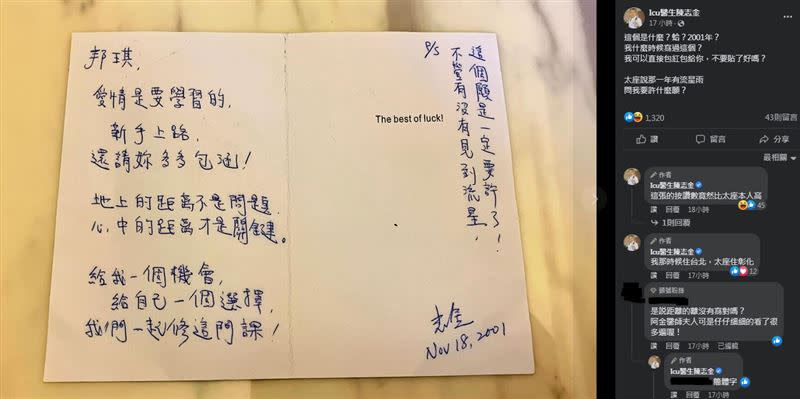 邦琪,
愛情是要學習的,
新手上路,
還請妳多多包涵!
地上的距离不是問題,
心中的距离才是關鍵。
給我一個機會,
給自己一個選擇,
我們一起修這門課!
The best of luck!
P/S
這個願是一定要許了,
不管有沒有見到流星!
志金
Nov 18, 2001
Icu醫生陳志金
17小時
這個是什麼?蛤?2001年?
我什麼時候寫過這個?
我可以直接包紅包給你,不要貼了好嗎?
太座說那一年有流星雨
問我要許什麼願?
1,320
43則留言
讚 留言 分享
最相關
作者
Icu醫生陳志金
這張的按讚數竟然比太座本人高
45
讚 回覆 18小時
1則回覆
作者
Icu醫生陳志金
我那時候住台北,太座住彰化
12
讚 回覆 17小時
頭號粉絲
是說距離的離沒有寫對嗎?
阿金醫師夫人可是仔仔細細的看了很
多遍喔!
讚 回覆 17小時 已編輯
作者
Icu醫生陳志金
簡體字
讚 回覆 17小時